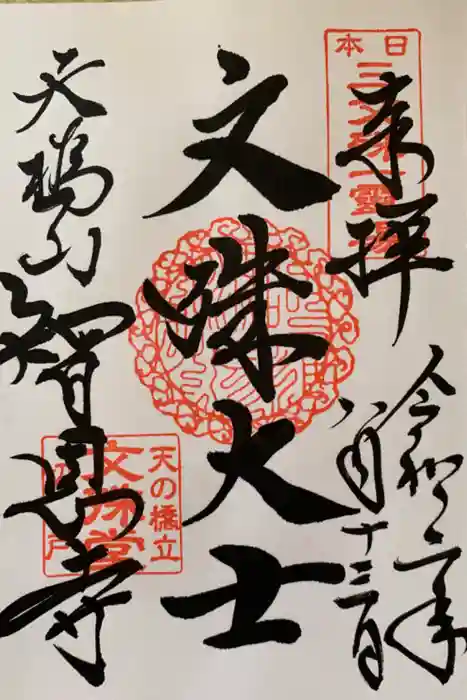 奉拝
日本
三文殊一霊場
令和二年
八月十三日
文殊大士
天橋山
智恩寺
天の橋立
文殊堂